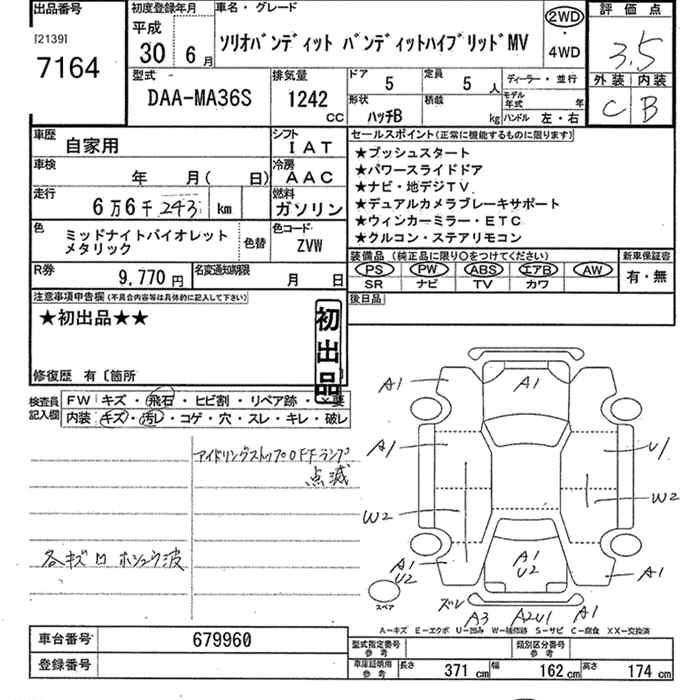 出品番号
[2139]
7164
初度登録年月
平成
30年 6月
車名・グレード
ソリオバンディット バンディットハイブリッドMV
2WD
・
4WD
評価点
3.5
外装 内装
C B
型式
DAA-MA36S
排気量
1242
CC
ドア 5
定員 5 人
形状 ハッチB
積載 kg
ディーラー・並行
モデル年式 年
ハンドル 左・右
車歴 自家用
シフト IAT
車検 年 月( 日)
冷房 AAC
走行 6万6千 243 km
燃料 ガソリン
色 ミッドナイトバイオレット
メタリック
色替
色コード ZVW
セールスポイント(正常に機能するものに限ります)
★プッシュスタート
★パワースライドドア
★ナビ・地デジTV
★デュアルカメラブレーキサポート
★ウィンカーミラー・ETC
★クルコン・ステアリモコン
R券 9,770円
名変通知期限 月 日
装備品 (純正品に限り○をつけてください)
PS PW ABS エアB AW
SR ナビ TV カワ
新車保証書
有・無
注意事項申告欄(不具合内容等は具体的に記入して下さい)
★初出品★★
初出品
修復歴 有〔箇所
後日品
検査員記入欄
FW キズ・飛石・ヒビ割・リペア跡・×要
内装 キズ・汚レ・コゲ・穴・スレ・キレ・破レ
アイドリングストップOFFランプ
点滅
各キズ凹 ホシュウ波
A1 A1
A1 U1
W2 W2
A1
U2
A1
U2
A1
スペア
ズレ A3 A2U1 A1
A-キズ E-エクボ U-凹み W-補修跡 S-サビ C-腐食 XX-交換済
車台番号 679960
登録番号
型式指定番号
参考
類別区分番号
参考
車庫証明用
参考
長さ 371 cm 幅 162 cm 高さ 174 cm